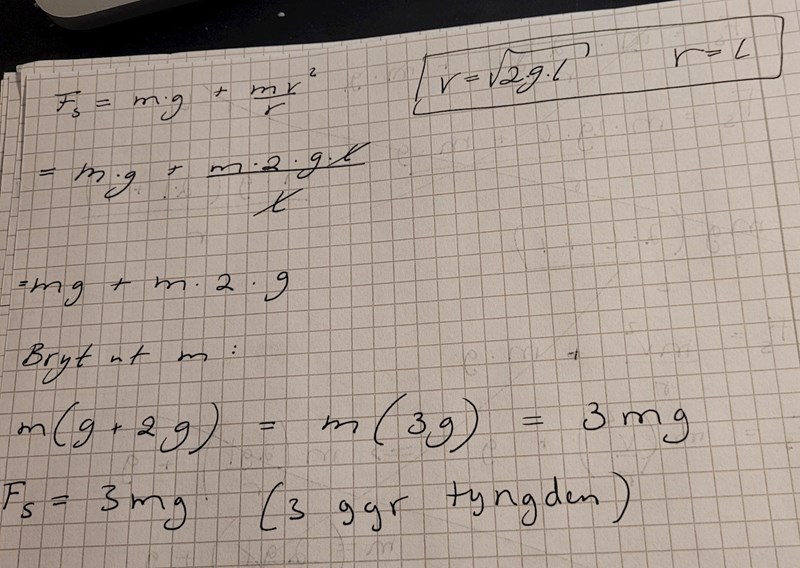 F_s = m·g + \frac{mv^2}{r}
v = \sqrt{2g·l}   r = L
= m·g + \frac{m·2·g·l}{l}
= mg + m·2·g
Bryt ut m:
m(g + 2g) = m(3g) = 3mg
F_s = 3mg. (3 ggr tyngden)